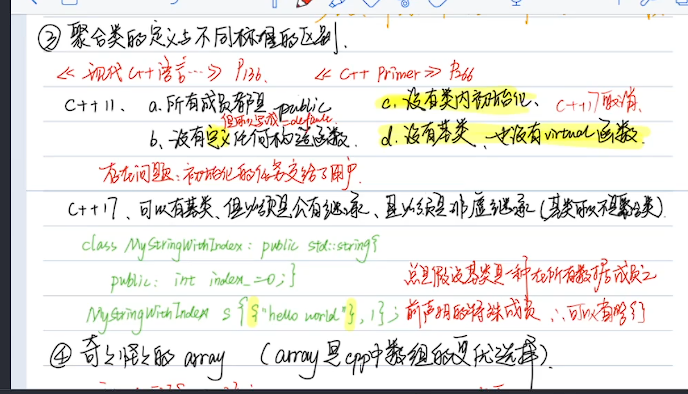 ③ 聚合类的定义与不同标准的区别.
《现代C++语言…》P136. 《C++ Primer》P266
C++11. a. 所有成员都是 public c. 没有类内初始化、C++17取消.
但可以写成=default
b. 没有定义任何构造函数. d. 没有基类、也没有virtual函数.
存在问题:初始化的任务交给了用户.
C++17、可以有基类、但必须是公有继承、且必须是非虚继承(基类可以不是聚合类).
class MyStringWithIndex : public std::string{
public: int index_=0;}
MyStringWithIndex s {{"hello world"},1};
总是假设基类是一种在所有数据成员之
前声明的特殊成员 ∴可以省略{}
④ 奇奇怪怪的 array (array是cpp中数组的更优选择).